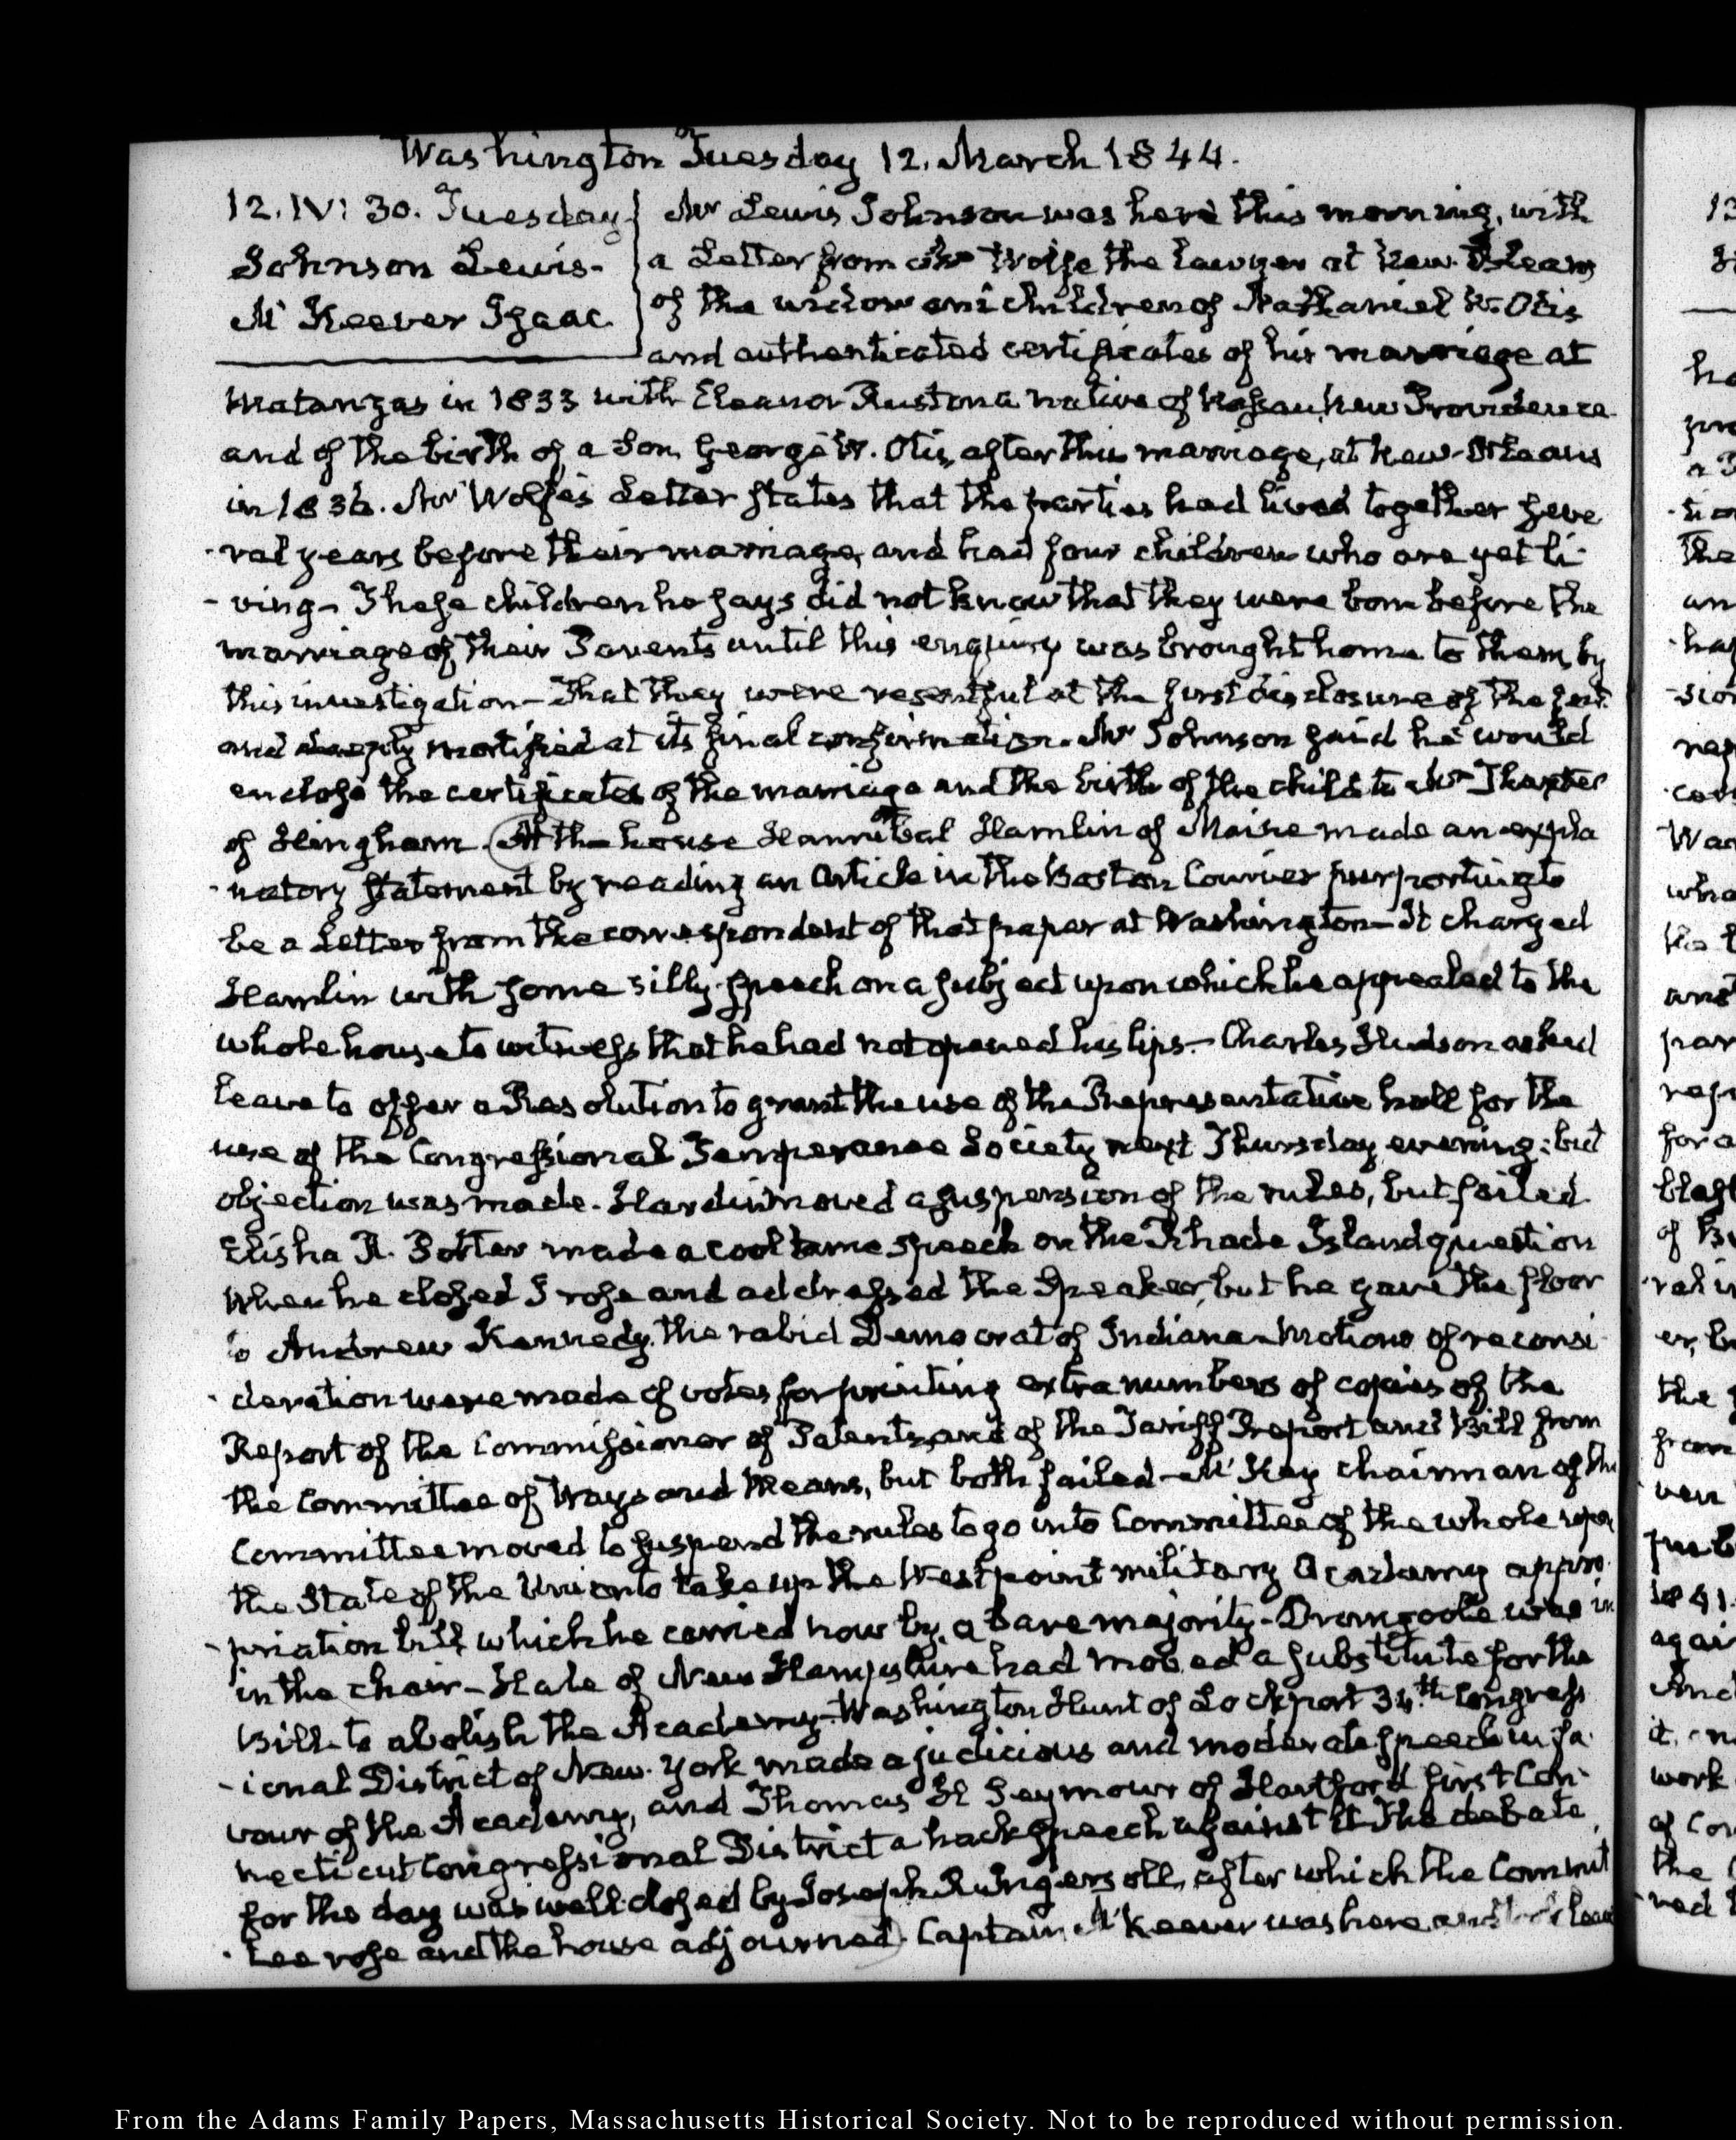 Washington Tuesday 12. March 1844.
12. IV: 30. Tuesday
Johnson Lewis.
McKeever Isaac.
Mr Lewis Johnson was here this morning, with
a Letter from Mr Wolfe the lawyer at New-Orleans
of the widow and children of Nathaniel W. Otis
and authenticated certificates of his marriage at
Matanzas in 1833 with Eleanor Ruston a native of Nassau, New Providence
and of the birth of a Son, George W. Otis, after this marriage, at New-Orleans
in 1836. Mr Wolfe's Letter states that the parties had lived together seve
-ral years before their marriage, and had four children who are yet li-
-ving- These children he says did not know that they were born before the
marriage of their Parents until this enquiry was brought home to them, by
this investigation- That they were resentful at the first disclosure of the fact
and deeply mortified at its final confirmation. Mr Johnson said he would
enclose the certificates of the marriage and the birth of the child to Mr Thaxter
of Hingham. At the house Hannibal Hamlin of Maine made an expla
-natory statement by reading an Article in the Boston Courier purporting to
be a Letter from the correspondent of that paper at Washington- It charged
Hamlin with some silly speech on a subject upon which he appealed to the
whole house to witness that he had not opened his lips.- Charles Hudson asked
leave to offer a Resolution to grant the use of the Representative hall for the
use of the Congressional Temperance Society next Thursday evening: but
objection was made. Hardin moved a suspension of the rules, but failed
Elisha R. Potter made a cool tame speech on the Rhode Island question
When he closed I rose and addressed the Speaker, but he gave the floor
to Andrew Kennedy, the rabid Democrat of Indiana- Motions of reconsi
-deration were made of votes for printing extra numbers of copies of the
Report of the Commissioner of Patents, and of the Tariff Report and Bill from
the Committee of Ways and Means, but both failed- McKay chairman of the
Committee moved to suspend the rules to go into Committee of the whole upon
the State of the Union to take up the Westpoint military Academy appro
-priation bill which he carried now by a bare majority- Dromgoole was in
in the chair- Hale of New Hampshire had moved a substitute for the
Bill- to abolish the Academy- Washington Hunt of Lockport 34th Congress
-ional District of New-York made a judicious and moderate speech in fa
vour of the Academy, and Thomas H Seymour of Hartford first Con-
necticut Congressional District a hack speech against it. The debate
for the day was well closed by Joseph R Ingersoll, after which the Commit
-tee rose and the house adjourned. Captain McKeever was here and took leave
From the Adams Family Papers, Massachusetts Historical Society. Not to be reproduced without permission.